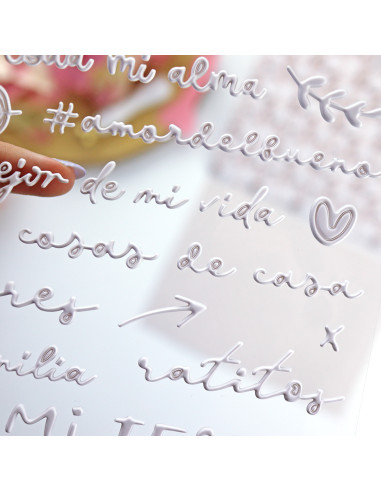 mi alma
#amordelbueno
ejor de mi vida
cosas de casa
res
milia ratitos
MI TE